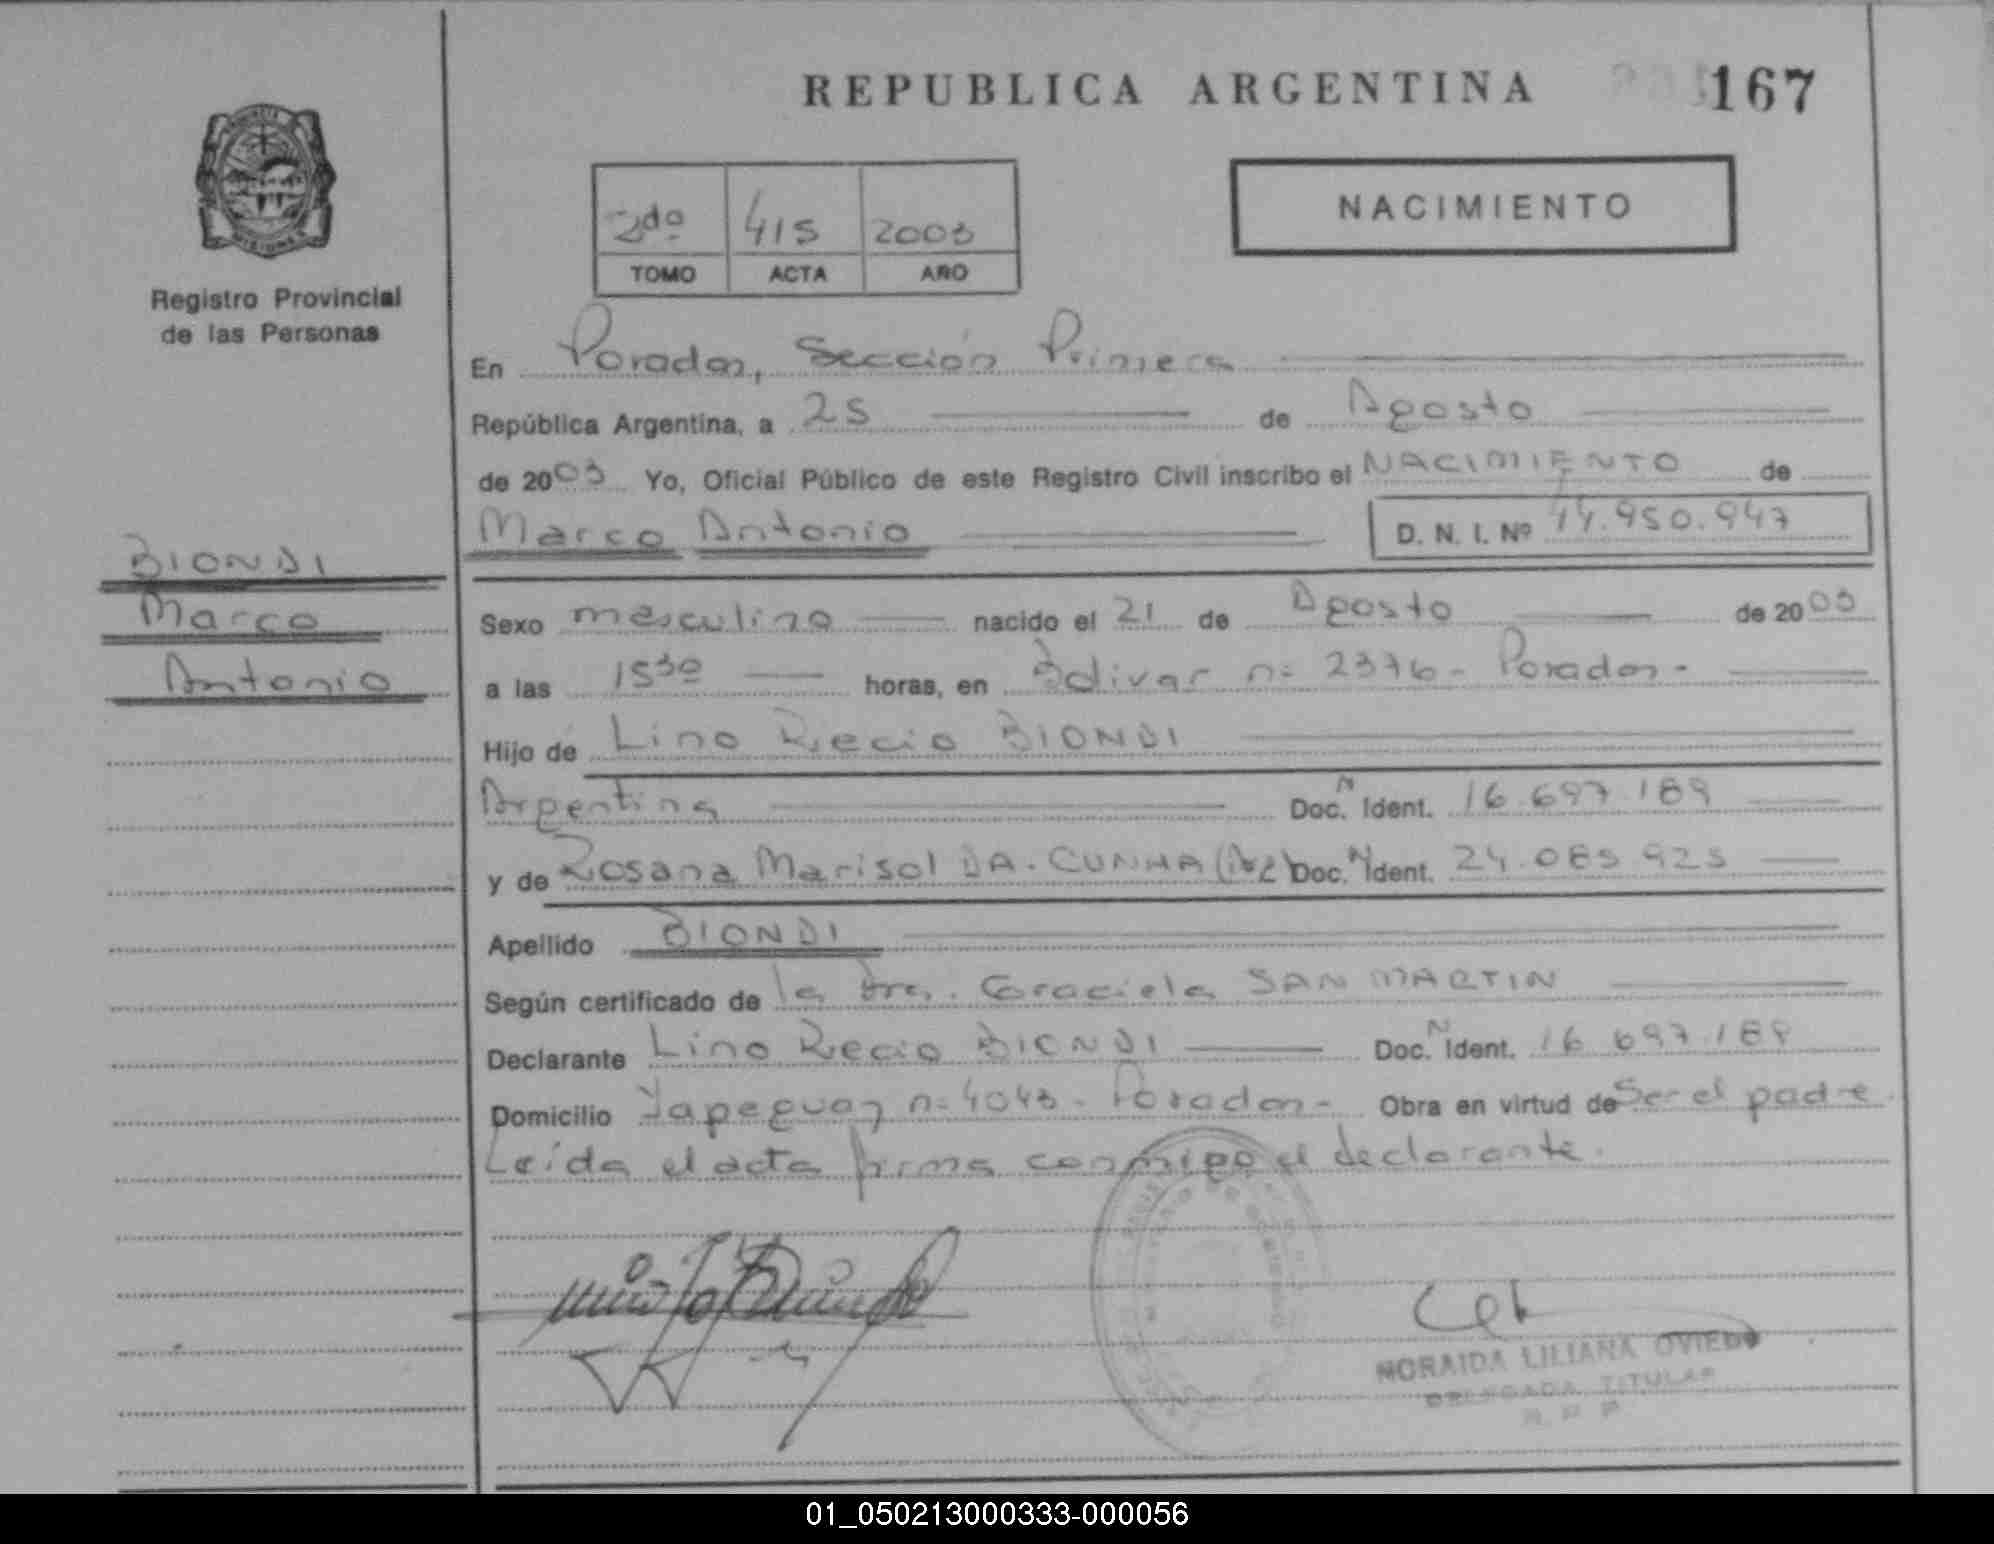 REPUBLICA ARGENTINA
167
2do 415 2003
TOMO ACTA AÑO
NACIMIENTO
Registro Provincial
de las Personas
En Posadas, Sección Primera
República Argentina, a 25 de Agosto
de 2003 Yo, Oficial Público de este Registro Civil inscribo el NACIMIENTO de
Marco Antonio D. N. I. Nº 44.950.947
BIONDI
Marco
Antonio
Sexo masculino nacido el 21 de Agosto de 2003
a las 15 30 horas, en Bolivar nº 2376 - Posadas -
Hijo de Lino Recio BIONDI
Argentina Doc. N Ident. 16.697.189
y de Rosana Marisol DA. CUNHA Doc. N Ident. 24.085.925
Apellido BIONDI
Según certificado de la Dra. Graciela SAN MARTIN
Declarante Lino Recio BIONDI Doc. N Ident. 16.697.189
Domicilio Yapeyu nº 4043 - Posadas - Obra en virtud de Ser el padre.
Leída el acta firma conmigo el declarante.
NORAIDA LILIANA OVIEDO
DELEGADA TITULAR
R P P
01_050213000333-000056